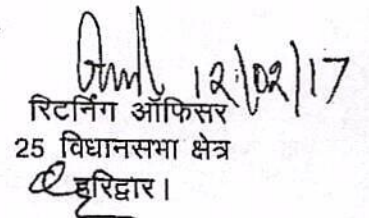 12/02/17
रिटर्निंग ऑफिसर
25 विधानसभा क्षेत्र
हरिद्वार।